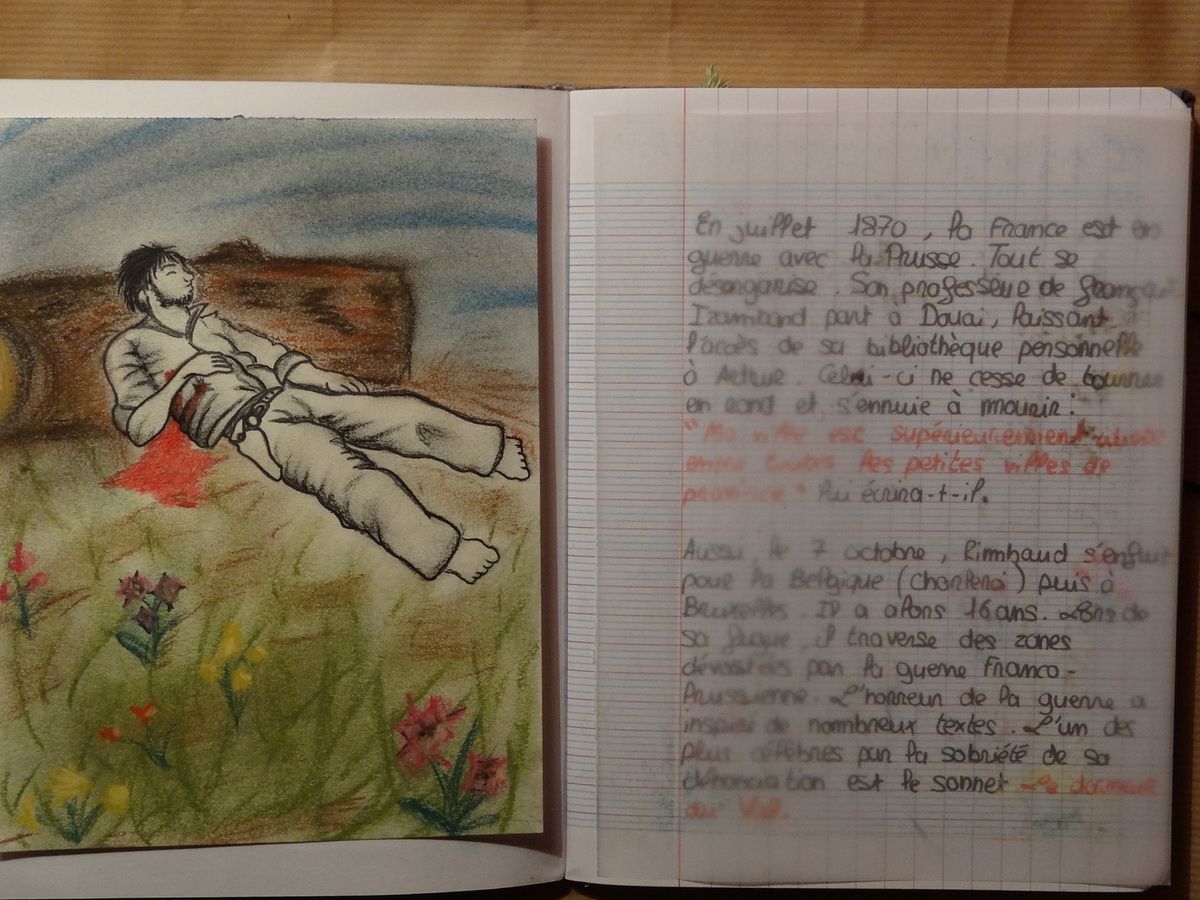 En juillet 1870, la France est en
guerre avec la Prusse. Tout se
désorganise. Son professeur de français
Izambard part à Douai, laissant
l'accès de sa bibliothèque personnelle
à Arthur. Celui-ci ne cesse de tourner
en rond et s'ennuie à mourir :
"Ma ville est supérieurement idiote
entre toutes les petites villes de
province" lui écrira-t-il.
Aussi le 7 octobre, Rimbaud s'enfuit
pour la Belgique (Charleroi) puis à
Bruxelles. Il a alors 16 ans. Lors de
sa fugue, il traverse des zones
dévastées par la guerre Franco-
Prussienne. L'horreur de la guerre a
inspiré de nombreux textes. L'un des
plus célèbres par la sobriété de sa
dénonciation est le sonnet Le dormeur
du Val.